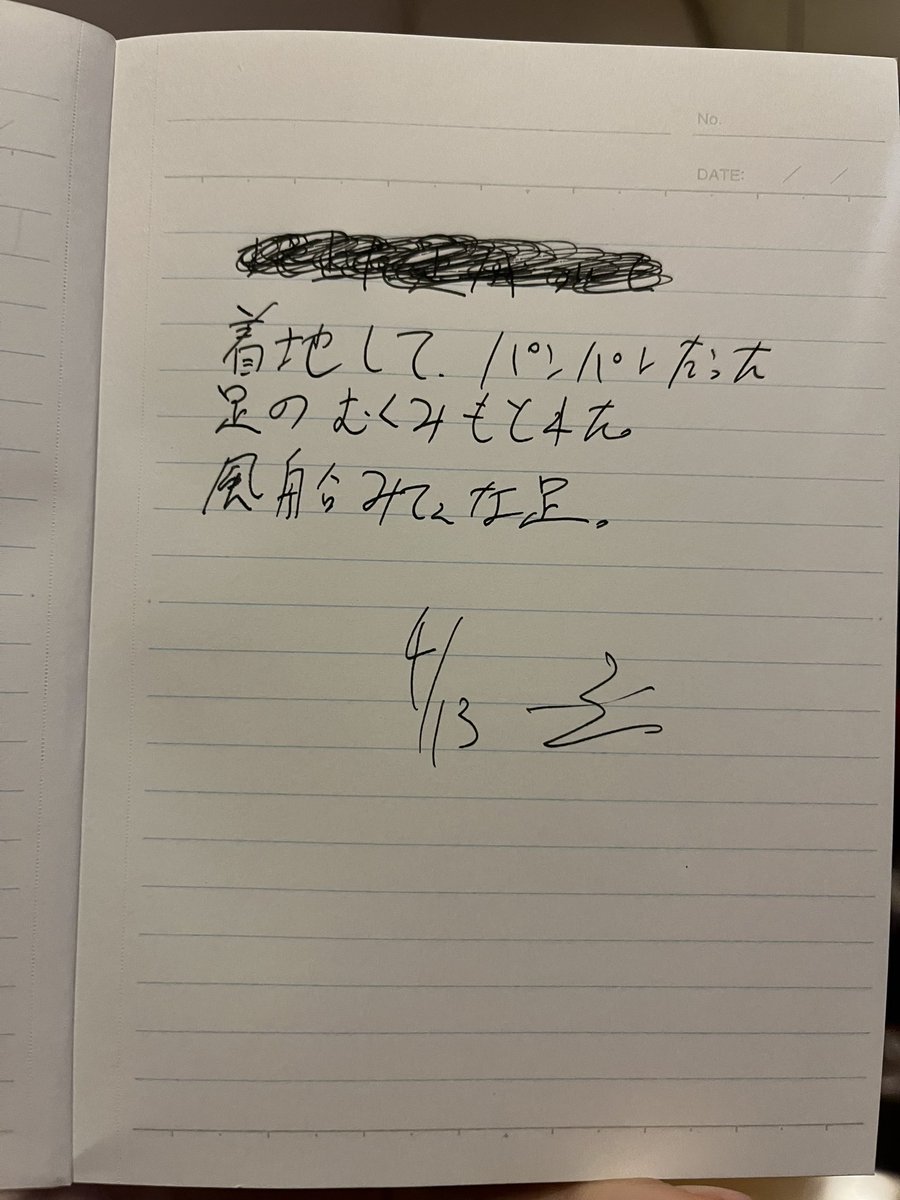 No.
DATE: / /
着地して、パンパンだった
足のむくみもとれた。
風船みてえな足。
4/13